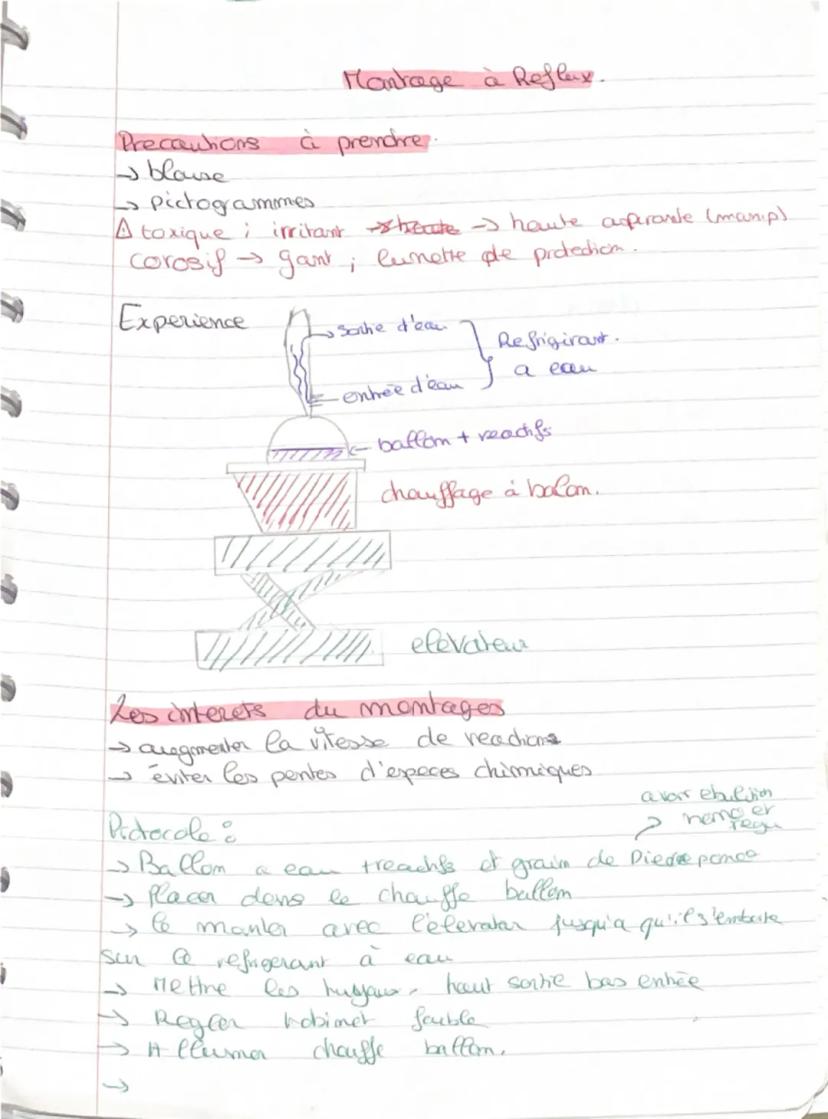 Montage à Reflux.
Precautions à prendre.
→ blouse
→ pictogrammes
⚠ toxique ; irritant → haute aspirante (manip)
corosif → gant ; lunette de protection.
Experience
→ sortie d'eau
Refrigirant.
a eau
entrée d'éau
← ballon + reactifs
chauffage à balon.
elevateur
Les interets du montages
→ augmenter la vitesse de reactions
→ éviter les pertes d'especes chimiques
avoir ebulition
Protocole :
→ Ballon a eau + reactifs et grain de Pierre ponce
→ Placer dans le chauffe ballon
→ le monter avec l'elevateur jusqu'a qu'il s'emboite
sur le refrigerant à eau
→ Mettre les tuyaux, haut sortie bas entrée
→ Regler robinet faible
→ Allumer chauffe ballon.
→